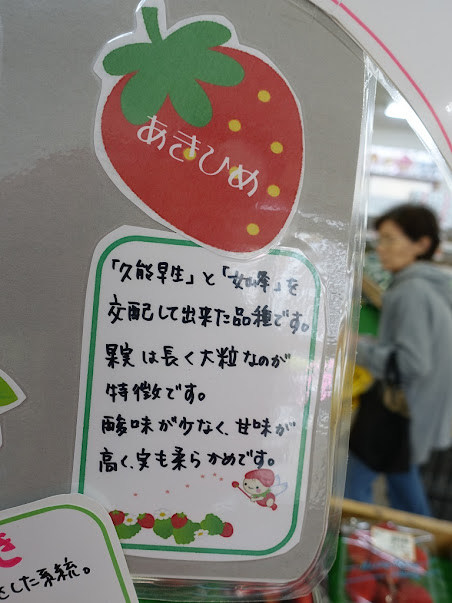 あきひめ
「久能早生」と「女峰」を
交配して出来た品種です。
果実は長く大粒なのが
特徴です。
酸味が少なく、甘味が
高く、実も柔らかめです。
き
した系統。